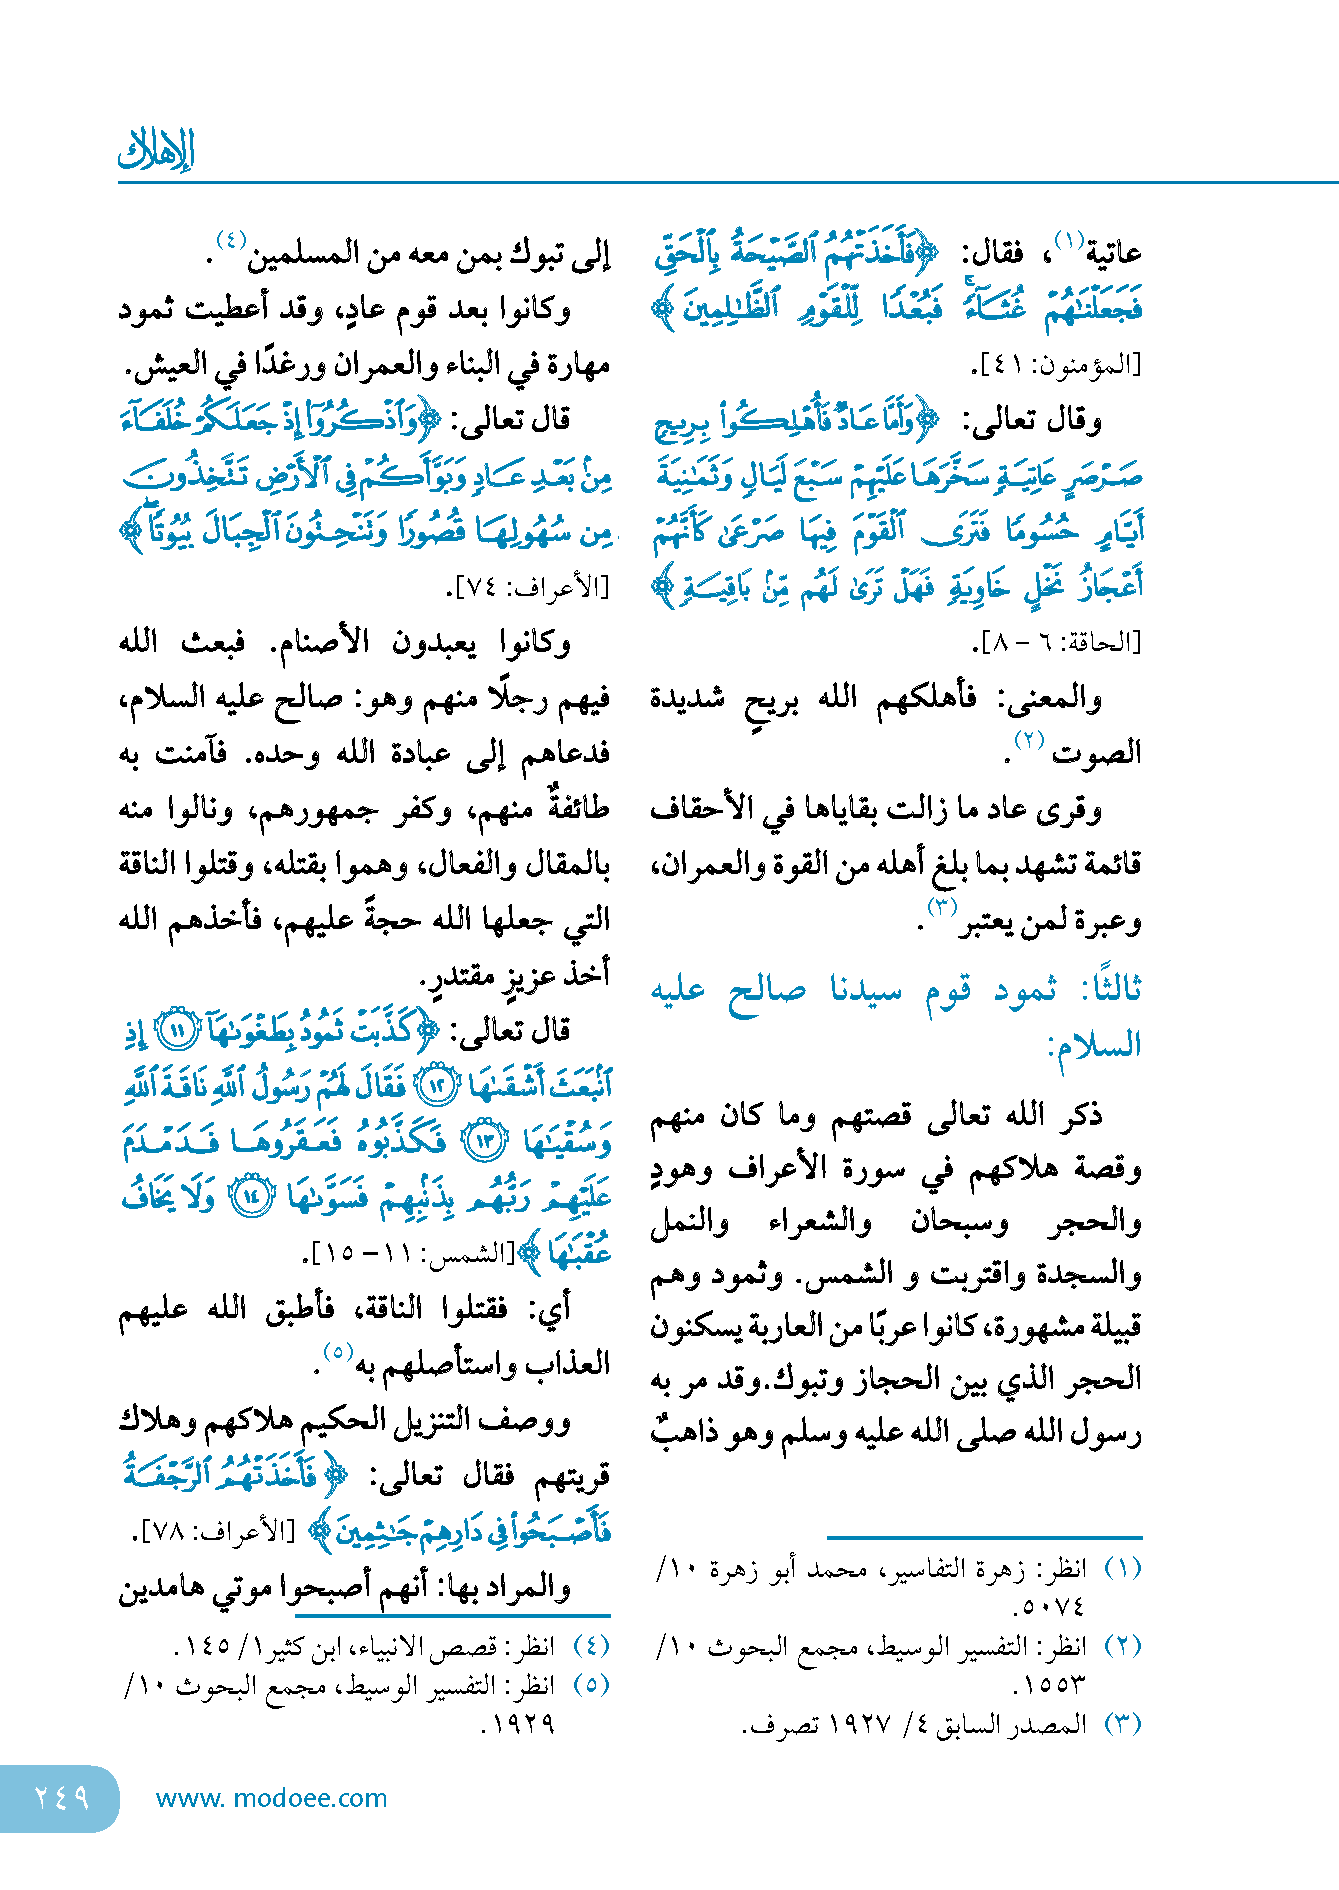 الإهلاك
عاتية(١)، فقال: ﴿فَأَخَذَتْهُمُ ٱلصَّيْحَةُ بِٱلْحَقِّ
فَجَعَلْنَٰهُمْ غُثَآءً ۚ فَبُعْدًا لِّلْقَوْمِ ٱلظَّٰلِمِينَ ﴾
[المؤمنون: ٤١].
وقال تعالى: ﴿وَأَمَّا عَادٌ فَأُهْلِكُوا۟ بِرِيحٍ
صَرْصَرٍ عَاتِيَةٍ سَخَّرَهَا عَلَيْهِمْ سَبْعَ لَيَالٍ وَثَمَٰنِيَةَ
أَيَّامٍ حُسُومًا فَتَرَى ٱلْقَوْمَ فِيهَا صَرْعَىٰ كَأَنَّهُمْ
أَعْجَازُ نَخْلٍ خَاوِيَةٍ فَهَلْ تَرَىٰ لَهُم مِّنۢ بَاقِيَةٍ ﴾
[الحاقة: ٦ - ٨].
والمعنى: فأهلكهم الله بريحٍ شديدة
الصوت(٢).
وقرى عاد ما زالت بقاياها في الأحقاف
قائمة تشهد بما بلغ أهله من القوة والعمران،
وعبرة لمن يعتبر(٣).
ثالثًا: ثمود قوم سيدنا صالح عليه
السلام:
ذكر الله تعالى قصتهم وما كان منهم
وقصة هلاكهم في سورة الأعراف وهودٍ
والحجر وسبحان والشعراء والنمل
والسجدة واقتربت و الشمس. وثمود وهم
قبيلة مشهورة، كانوا عربًا من العاربة يسكنون
الحجر الذي بين الحجاز وتبوك.وقد مر به
رسول الله صلى الله عليه وسلم وهو ذاهبٌ
(١) انظر: زهرة التفاسير، محمد أبو زهرة ١٠/
٥٠٧٤.
(٢) انظر: التفسير الوسيط، مجمع البحوث ١٠/
١٥٥٣.
(٣) المصدر السابق ٤/ ١٩٢٧ تصرف.
إلى تبوك بمن معه من المسلمين(٤).
وكانوا بعد قوم عادٍ، وقد أعطيت ثمود
مهارة في البناء والعمران ورغدًا في العيش.
قال تعالى: ﴿وَٱذْكُرُوٓا۟ إِذْ جَعَلَكُمْ خُلَفَآءَ
مِنۢ بَعْدِ عَادٍ وَبَوَّأَكُمْ فِى ٱلْأَرْضِ تَتَّخِذُونَ
مِن سُهُولِهَا قُصُورًا وَتَنْحِتُونَ ٱلْجِبَالَ بُيُوتًا ۖ ﴾
[الأعراف: ٧٤].
وكانوا يعبدون الأصنام. فبعث الله
فيهم رجلًا منهم وهو: صالح عليه السلام،
فدعاهم إلى عبادة الله وحده. فآمنت به
طائفةٌ منهم، وكفر جمهورهم، ونالوا منه
بالمقال والفعال، وهموا بقتله، وقتلوا الناقة
التي جعلها الله حجةً عليهم، فأخذهم الله
أخذ عزيزٍ مقتدرٍ.
قال تعالى: ﴿كَذَّبَتْ ثَمُودُ بِطَغْوَىٰهَآ ١١ إِذِ
ٱنۢبَعَثَ أَشْقَىٰهَا ١٢ فَقَالَ لَهُمْ رَسُولُ ٱللَّهِ نَاقَةَ ٱللَّهِ
وَسُقْيَٰهَا ١٣ فَكَذَّبُوهُ فَعَقَرُوهَا فَدَمْدَمَ
عَلَيْهِمْ رَبُّهُم بِذَنۢبِهِمْ فَسَوَّىٰهَا ١٤ وَلَا يَخَافُ
عُقْبَٰهَا ﴾[الشمس: ١١- ١٥].
أي: فقتلوا الناقة، فأطبق الله عليهم
العذاب واستأصلهم به(٥).
ووصف التنزيل الحكيم هلاكهم وهلاك
قريتهم فقال تعالى: ﴿ فَأَخَذَتْهُمُ ٱلرَّجْفَةُ
فَأَصْبَحُوا۟ فِى دَارِهِمْ جَٰثِمِينَ ﴾ [الأعراف: ٧٨].
والمراد بها: أنهم أصبحوا موتي هامدين
(٤) انظر: قصص الانبياء، ابن كثير١/ ١٤٥.
(٥) انظر: التفسير الوسيط، مجمع البحوث ١٠/
١٩٢٩.
www. modoee.com
٢٤٩